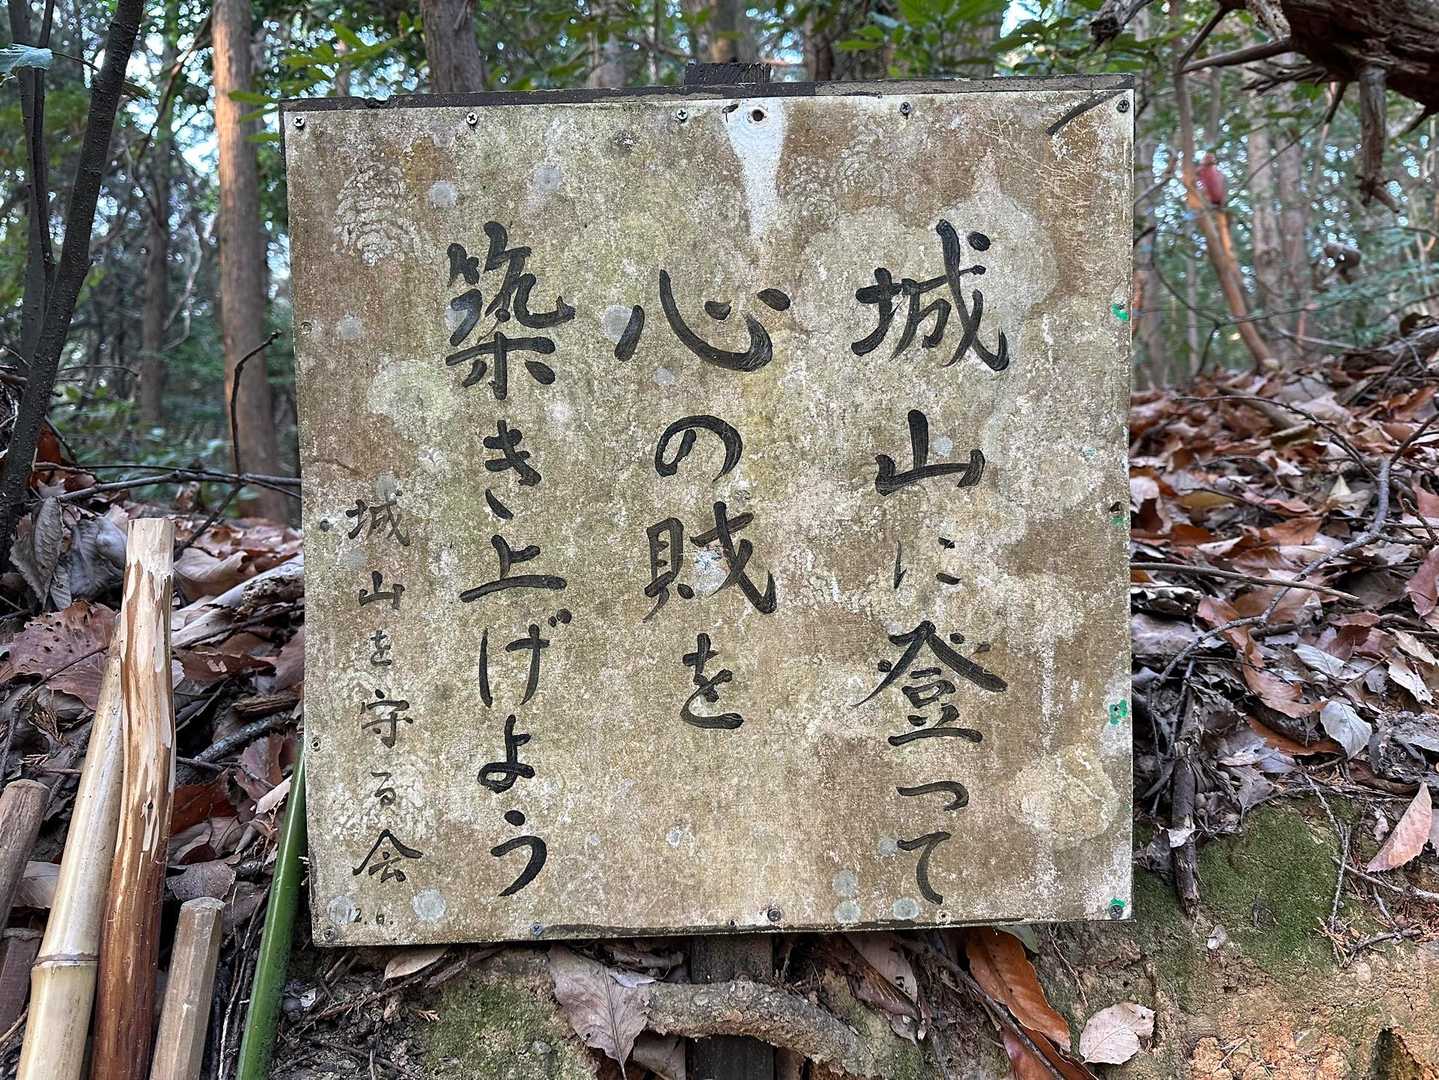 城山に登って
心の財を
築き上げよう
城山を守る会
12.6.